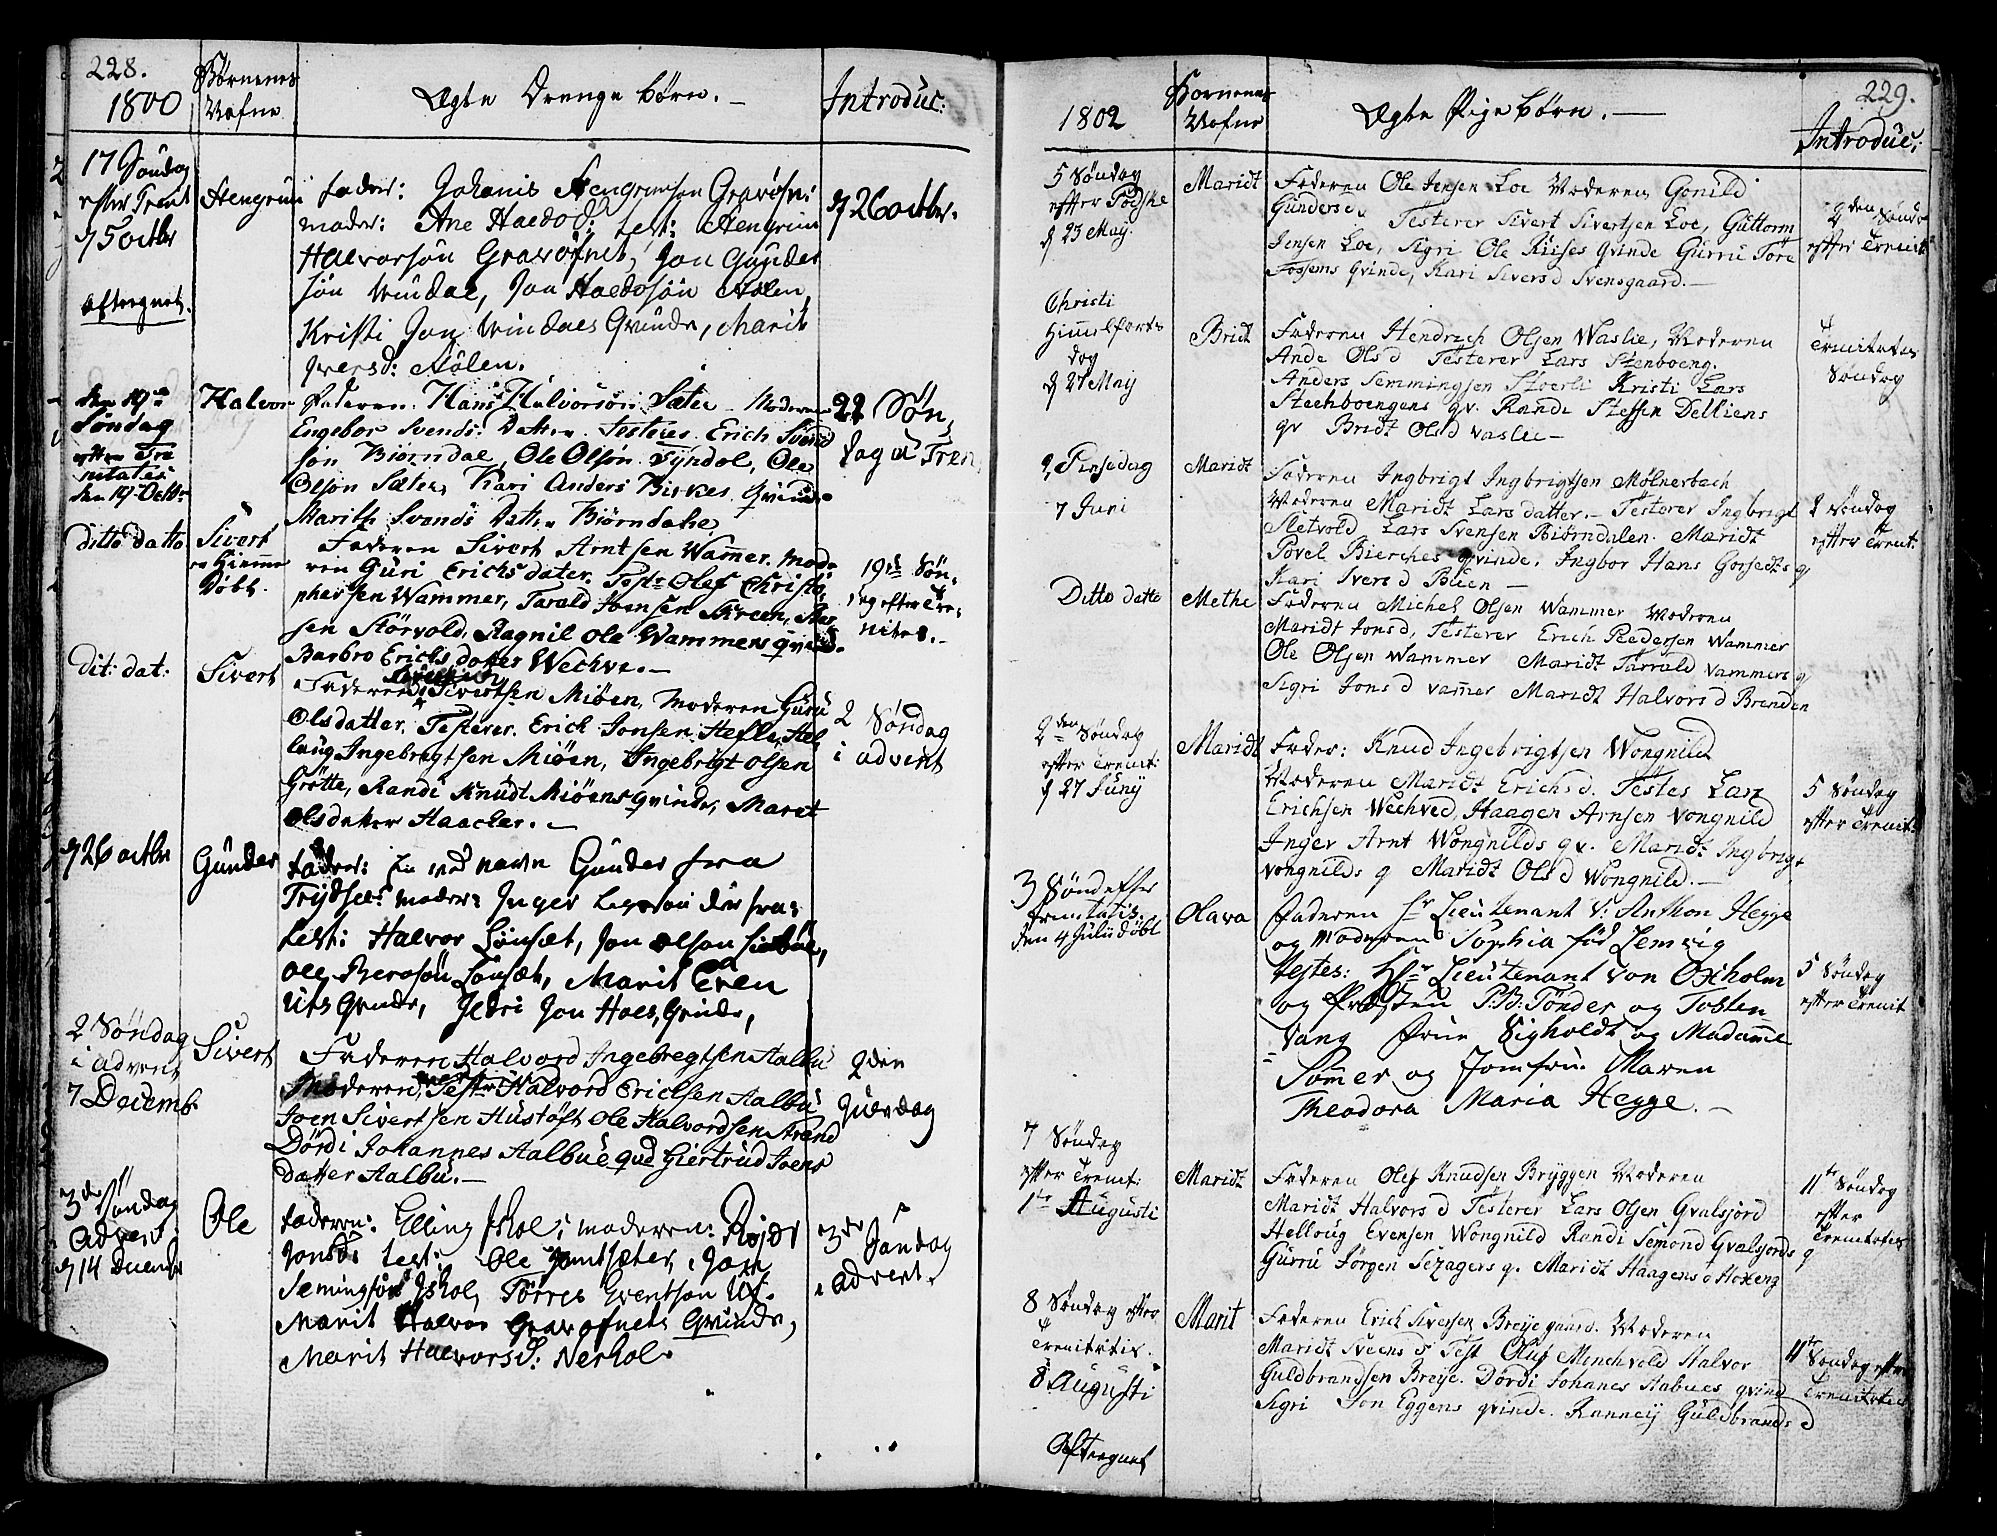 228.
1800
Børnenes
Nafne
Ægte Drenge børn. —
Introduc:
17 Søndag
efter Trent
d 5 octbr
aftegnet.
Stengrim
fader: Johanis Stengrimsøn Gravøfn:
moder: Ane Haldosd: test: Stengrim
Halvorsøn Gravøfnet, Jon Gunder
søn Vindal, Jon Haldosøn Aalen
Kristi Jon Vindals Qvinde, Marit
Iversd: Aalen.
d 26 octbr.
den 19de
Søndag
efter Tri
nitatis
den 19 Octbr
Halvor
Faderen Hans Halvorsøn Sæter Moderen
Engebor Svends: Datter Testeres Erich Svend
søn Biørndal, Ole Olsøn Lyndol, Ole
Olsøn Sæter, Kari Anders Birkes Qvinde
Marith Svends Datter Biørndahl
22 Søn,
dag a Tren,
Ditto datto
Sivert
er Hiemme
Døbt.
Faderen Sivert Arntsen Wammer. Mode
ren Guri Erichsdater. Testr Olef Christo,
phersen Wammer, Tarald Joensen Skreen,
sen Störvold, Ragnil Ole Wammens qvind.
Barbro Erichs datter Wechve. —
19de Søn,
dag efter Tre,
nites. —
Dit: dat:
Sivert
Faderen Sivertsen Miöen, Moderen Guru
Olsdatter. Testerer. Erich Jonsen Hefle, Hel
laug Ingebregtsen Miöen, Ingebrigt Olsen
Grötte, Randi Knudt Miöens qvinde, Maret
Olsdatter Haacker. —
2 Søndag
i advent
d 26 octbr
Gunder
fader: En ved navn Gunder fra
Trydsel: moder: Inger
test: Halvor Lønset, Jon Olsøn
Ole Berosøn Lønset, Marit Even
Uts Qvinde, Jon Hoels Qvinde,
2 Søndag
i advent
7 Decemb.
Sivert
Faderen Halvord Ingebregtsen Aalbu
Moderen, Testr Halvord Erichsen Aalbu
Joen Sivertsen Hustöft Ole Halvordsen Strand
Dördi Johannes Aalbue qvd Giertrud Joens
datter Aalbu. —
2den
Juledag
3de Søndag
Advent
d 14 Decembr
Ole
faderen: Elling Ishol; moderen:
Jonsd: test: Ole Jamtsæter, Jon
Semingsøn Ishol, Torres Eventsøn Ut.
Marit Halvor Gravøfnets Qvinde,
Marit Halvorsd: Nerhol.
3de Søndag
i Advent.
229.
1802
Børnenes
Nafne
Ægte Pige børn. —
Introduc:
5 Søndag
efter Podske
d 23 May.
Maridt
Faderen Ole Jensen Loe Moderen Gonild
Gundersd. Testerer Sivert Sivertsen Loe, Guttorm
Jensen Loe, Sigri Ole Riises qvinde Gurru Tore
Fossems Qvinde, Kari Siversd Svensgaard. —
2den Søndag
efter Trenit:
Christi
Himelfarts
dag
d 27 Maij
Bridt
Faderen Hendrich Olsen Waslie, Moderen
Ande Olsd Testerer Lars Stenboeng.
Anders Semmingsen Stoerli Kristi Lars
Stechboengens qv. Rande Steffen Delliens
qv Bridt Olsd Vaslie —
Trenitatis
Søndag
2, Pinsedag
7 Juni
Maridt
Faderen Ingbrigt Ingbrigtsen Mølnerbach
Moderen Maridt Lars datter. — Testerer Ingbrigt
Sletvold Lars Svensen Biørndalen. Maridt
Povel Bierches qvinde. Ingbor Hans Gorsedts q
Kari Iversd Blien —
2 Søndag
efter Trenit:
Ditto datto
Methe
Faderen Michel Olsen Wammer Moderen
Maridt Jonsd, Testerer Erich Pedersen Wammer
Ole Olsen Wammer Maridt Tarrald Vammers q
Sigri Jons d Vamer Maridt Halvors d Brenden
2den Søndag
efter Trenit:
d 27 Juny
Maridt
Fader: Knud Ingebrigtsen Wongnild
Moderen Maridt Erichs d. Testes Lars
Erichsen Wechved, Haagen Arnsen Vongnild
Inger Arnt Wongnilds qv. Maridt Ingbrigt
Vongnilds q Maridt Olsd Wongnild. —
5 Søndag
efter Trenit:
3 Søndefter
Trenitatis.
den 4 Julii döbt
Olava
Faderen Hr Lieutenant V: Anthon Hegge
og Moderen Sophia fød Lemvig
Testes: Hr Lieutenant von Oxholm
og Præsten P.B: Tönder og Tosten
Vang Frue Sigholdt og Madamme
Sommer og Jomfru. Maren
Theodora Maria Hegge. —
5 Søndag
efter Trenit
7 Søndag
efter Trenit:
1te Augusti
Maridt
Faderen Olef Knudsen Bryggen Moderen
Maridt Halvors d Testerer Lars Olsen Qvalsjord
Helloug Evensen Wongnild Randi Semond Gvalsjords
Gurru Jörgen Sezagers q. Maridt Haagens d Hoxeng
q
11te Søndag
efter
Trenitatis
8 Søndag efter
Trenitatis.
8 Augusti
Aftegnet
Marit
Faderen Erich Siversen Breyegaard. Moderen
Maridt Sveens d Test Oluf Menchvold Halvor
Guldbrandsen Breye. Dordi Johanes Aabues qvind
Sigri Jon Eggens qvinde. Ranney Guldbrands d
11te Søndag efter
Trenitatis